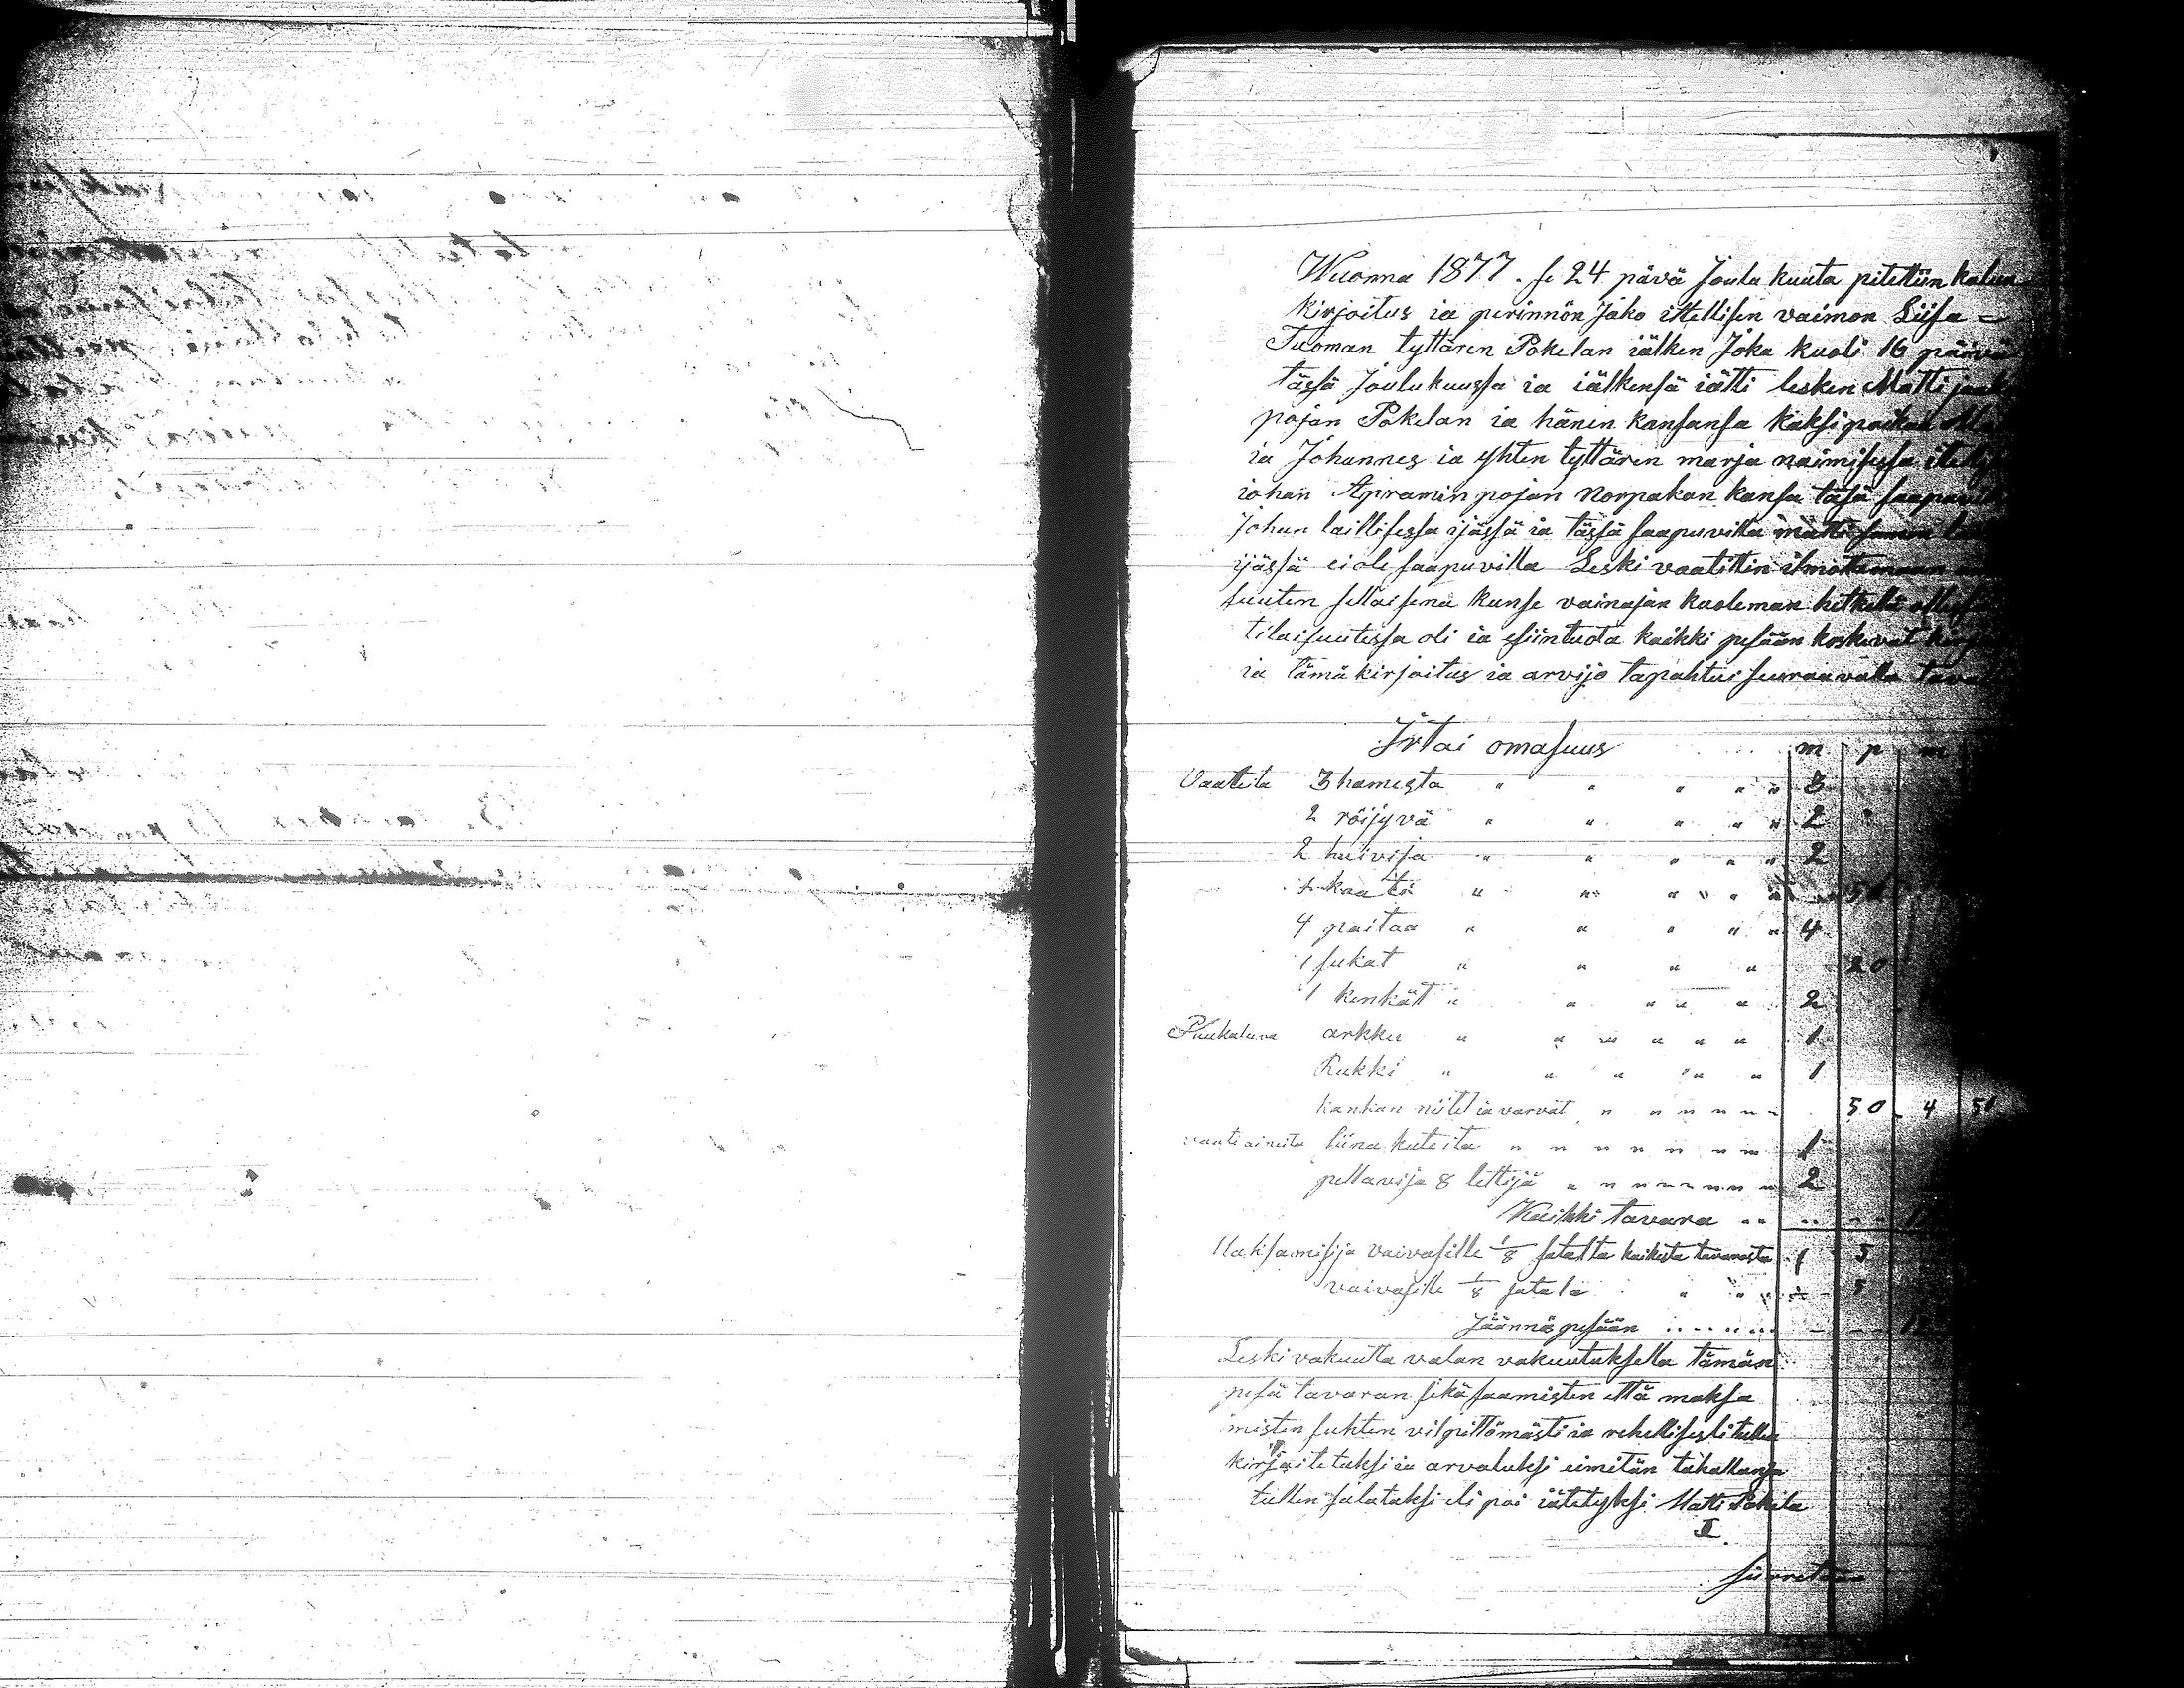 Wuonna 1877. se 24 pävä Joulu kuuta pitettiin kalun
kirjoitus ia perinnön Jako ittellisen vaimon Liisa
Tuoman tyttären Pokelan iälken Joka kuoli 16 päivä
tässä Joulukuussa ia iälkensä iätti lesken Matti
pojan Pokelan ia hänen kansansa kaksi poikaa
ia Johannes ia yhten tyttären marja naimisessa
iohan Apramin pojan Norpakan kansa täsä
Johan laillisessa ijässä ia tässä saapuvilla matti
ijässä ei ole saapuvilla Leski vaatittiin ilmottamaan
suuten sellaisena kunse vainajan kuoleman hetkelä
tilaisuutessa oli ia esiintuota kaikki pesään koskevat
ia tämä kirjoitus ia arvijo tapahtui seuraavalla
Irtai omasuus m p m
Vaatteita 3 hamesta " " " " " 3
2 röijyvä " " " " " 2
2 huivija " " " " " 2
" " " " " 50
4 paitaa " " " " " 4
1 sukat " " " " 20
1 kenkät " " " " " 2
Puukaluva arkku " " " " " " 1
Rukki " " " " " 1
kankan niitet ia varvat " " " " " " 50 4 50
vaate aineita liina kuteita " " " " " " " 1
pellavija 8 lettijä " " " " " " " 2
Kaikki tavara
Maksamisija vaivasille 1/8 satalta kaikesta tavarasta 1 5
vaivasille 1/8 satala " " " 5
Jäännös pesään
Leski vakuutta valan vakuutuksella tämän
pesä tavaran sekä saamisten että maksa
misten suhten vilpittömästi ia rehellisesti tullen
kirjoitetuksi ia arvatuksi eimitän tahallansa
tullen salatuksi eli pois iätetyksi Matti Pokela